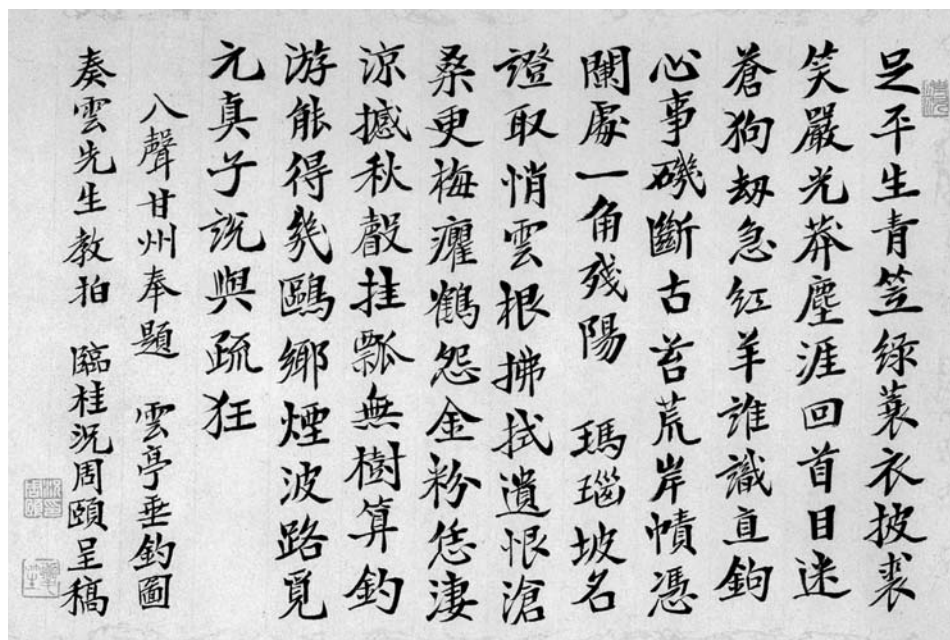 足平生青笠綠蓑衣披裘
笑嚴光莽塵涯回首目迷
蒼狗劫急紅羊誰識直鉤
心事磯斷古苔荒岸幘憑
闌處一角殘陽　瑪瑙坡名
證取悄雲根拂拭遺恨滄
桑更梅癯鶴怨金粉恁淒
涼撼秋聲挂瓢無樹算釣
游能得幾鷗鄉煙波路覓
元真子說與疏狂
八聲甘州奉題　雲亭垂釣圖
奏雲先生教拍　臨桂況周頤呈稿